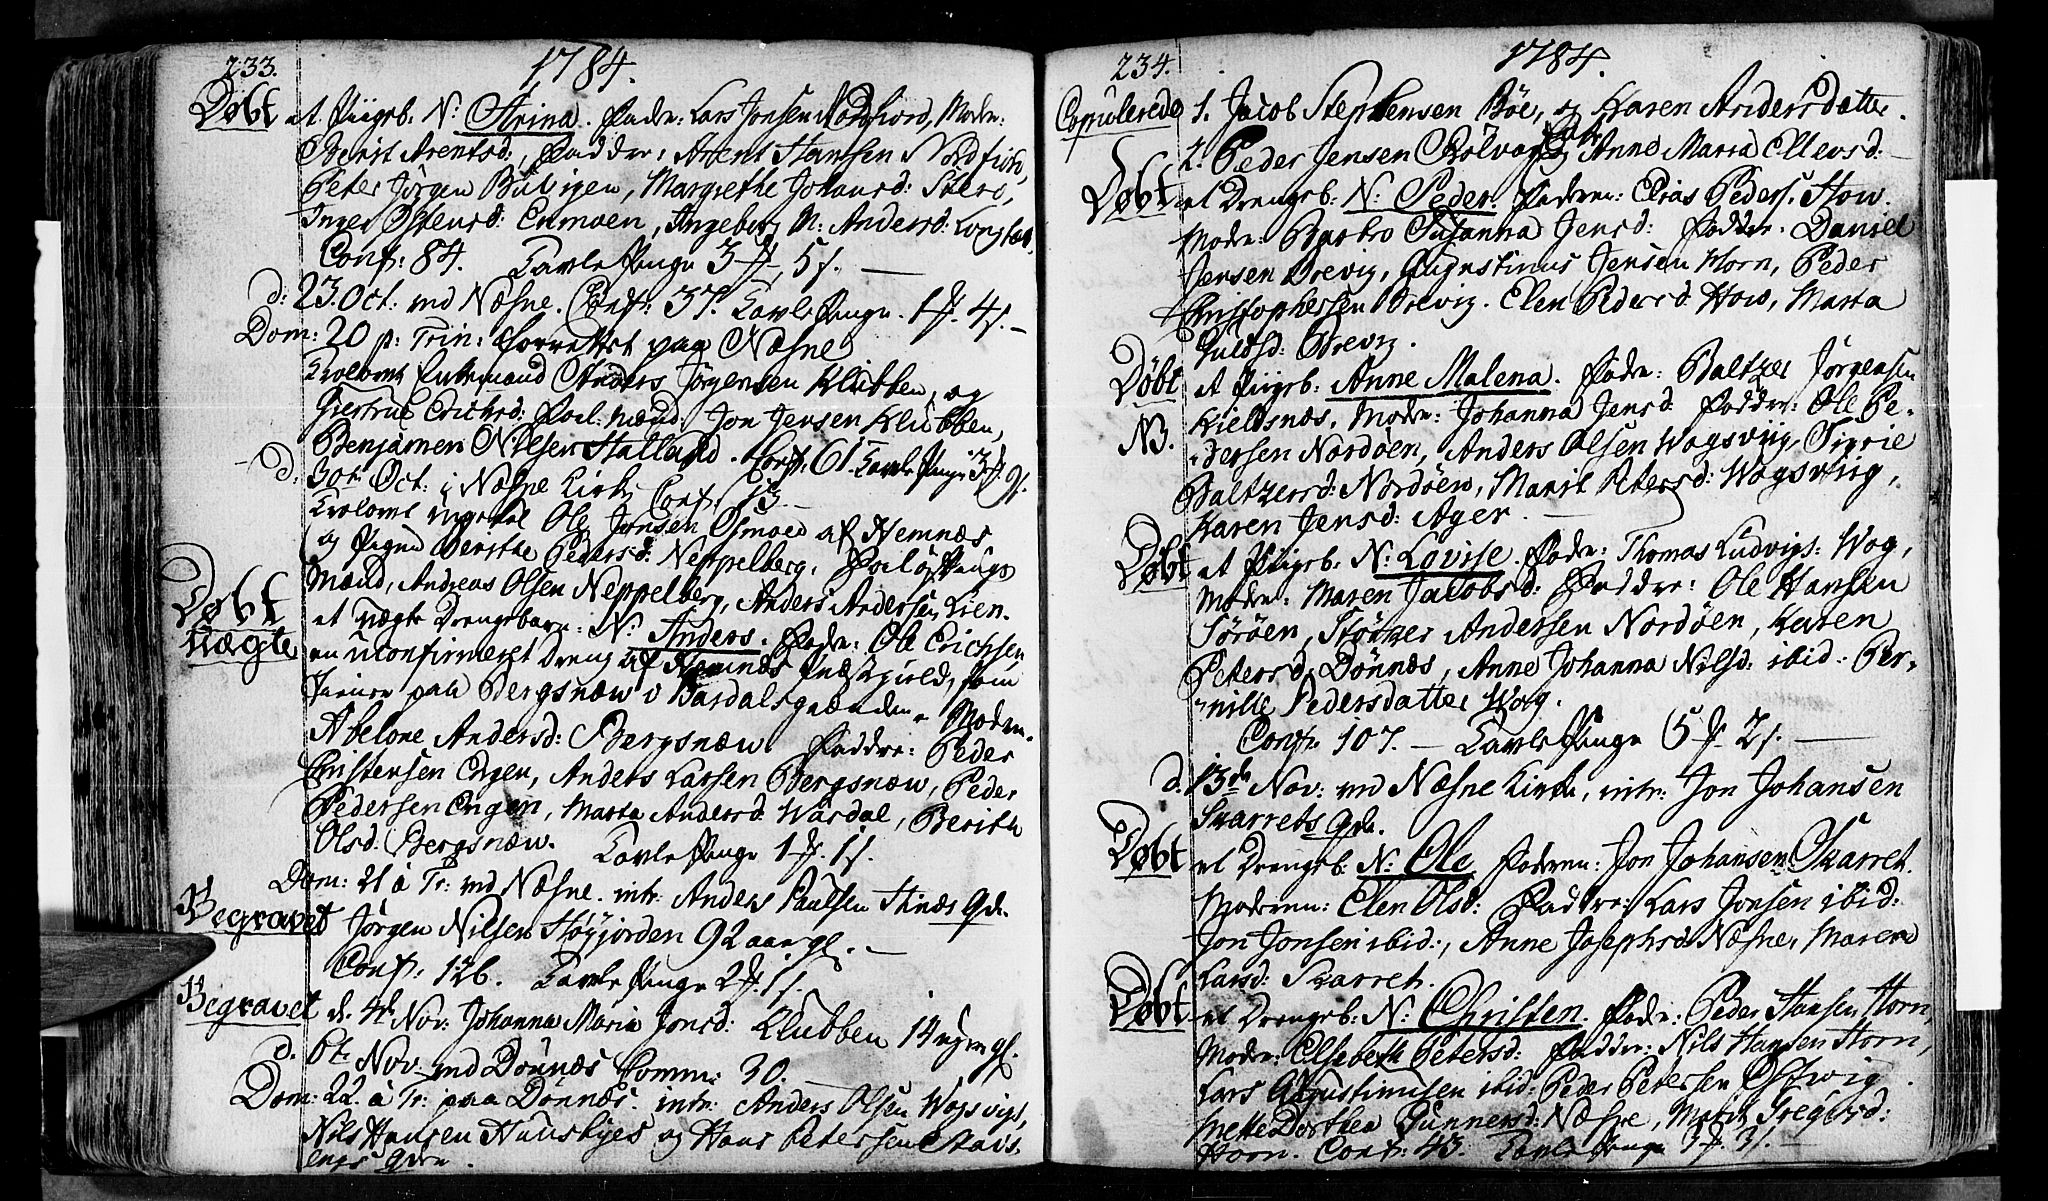 233.
1784.
Døbt et Piigeb. N: Strina. Fadr: Lars Jonsen Nordfiord, Modr:
Berit Arentsd:, Faddre: Arent Hansen Nordfiord,
Peter Jørgen Bulvigen, Margrethe Johansd:
Inger Ostensd: Enmoen, Angeberg M: Andersd:
Conf: 84. Tavle Penge 3 5 s.
d: 23. Oct. ved Næsne. Conf: 37. Tavle Penge. 1 4 s.
Dom: 20 p: Trin: forrettet paa Næsne
Trolovet Enkemand Anders Jørgensen Klubben, og
Giertrue Erichsd: Forl. mænd Jon Jensen Klubben,
Benjamen Nilsen Halland. Conf. 61. Tavle Penge 3 9 s.
d. 30te Oct: i Næsne Kirke Conf. 13.
Trolovet Ole Jonsen Osmoed af Hemnæs
og Pigen Berithe Pedersd: Neppelberg. Forløfnings
Mænd, Andreas Olsen Neppelberg, Anders Andersen Lien.
Døbt
uægte
et uægte Drengebarn. N: Anders. Fadr: Ole Erichsen
en uconfirmeret dreng af Hemnæs Præstegield, som
tiener paa Bergsnæv i Bardalsgrænden. Moder.
Abelone Andersd: Bergsnæv. Faddre: Peder
Christensen Engen, Anders Larsen Bergsnæv, Peder
Pedersen Engen, Marta Andersd: Wardal, Berith
Olsd: Bergsnæv. Tavle Penge 1 1 s.
Dom: 21 à Tr: ved Næsne. intr: Anders Paulsen Hnæs Qde.
Begravet Jørgen Nilsen Høyjorden 92 aar gl.
Conf: 126. Tavle Penge 2 1 s.
Begravet d. 4d Nov: Johanna Maria Jonsd: Klubben 14 uger gl.
d. 6t. Nov ved Dønnæs Comm: 30.
Dom: 22. à Tr: paa Dønnæs. intr: Anders Olsen Wogsvigs,
Nils Hansen Huusbyes og Hans Petersen
Qder.
234.
1784.
Copulerede 1. Jacob Stephensen Bøe, og Karen Andersdatter.
2. Peder Jensen Anne Maria Ellevsd:
Døbt et Drengb: N: Peder. Faderen: Elias Peders. How.
Modr: Barbro Susanna Jensd: Faddre: Daniel
Jensen Brevig, Augustinus Jensen Horn, Peder
Christophersen Brevig. Elen Pedersd: How, Marta
Brevig.
Døbt et Piigeb: Anne Malena. Fadr: Baltzer Jørgensen
NB. Kieldsnæs, Modr: Johanna Jensd Faddre: Ole Pe-
dersen Nordøen, Anders Olsen Wogsviig, Sigrie
Baltzersd: Nordøen, Marit Petersd: Wogsviig,
Karen Jensd: Ager.
Døbt et Piigeb: N: Lovise. Fadr: Thomas Ludvigs: Wog,
Modr: Maren Jacobsd: Faddre: Ole Hansen
Sørøen, Andersen Nordøen, Karen
Petersd: Dønnæs, Anne Johanna Nilsd: ibid: Per-
nille Pedersdatter Wog.
Conf: 107. — Tavle Penge 5 2 s.
d. 13de Nov: ved Næsne Kirke, intr: Jon Johansen
Skarrets Qde.
Døbt et Drengb: N: Ole Faderen: Jon Johansen Skarret.
Moderen: Elen Olsd: Faddre: Lars Jonsen ibid:
Jon Jonsen ibid:, Anne Josephsd: Næsne, Maren
Larsd: Skarret.
Døbt et Drengb: N: Christen. Fadr: Peder Hansen Horn,
Modr: Elsebeth Petersd: Faddre: Nils Hansen Horn,
Lars Augustinusen ibid: Peder Petersen
Mette Dorthea Gunnersd: Næsne, Marit
Horn. Conf: 43. Tavle Penge 3 3 s.